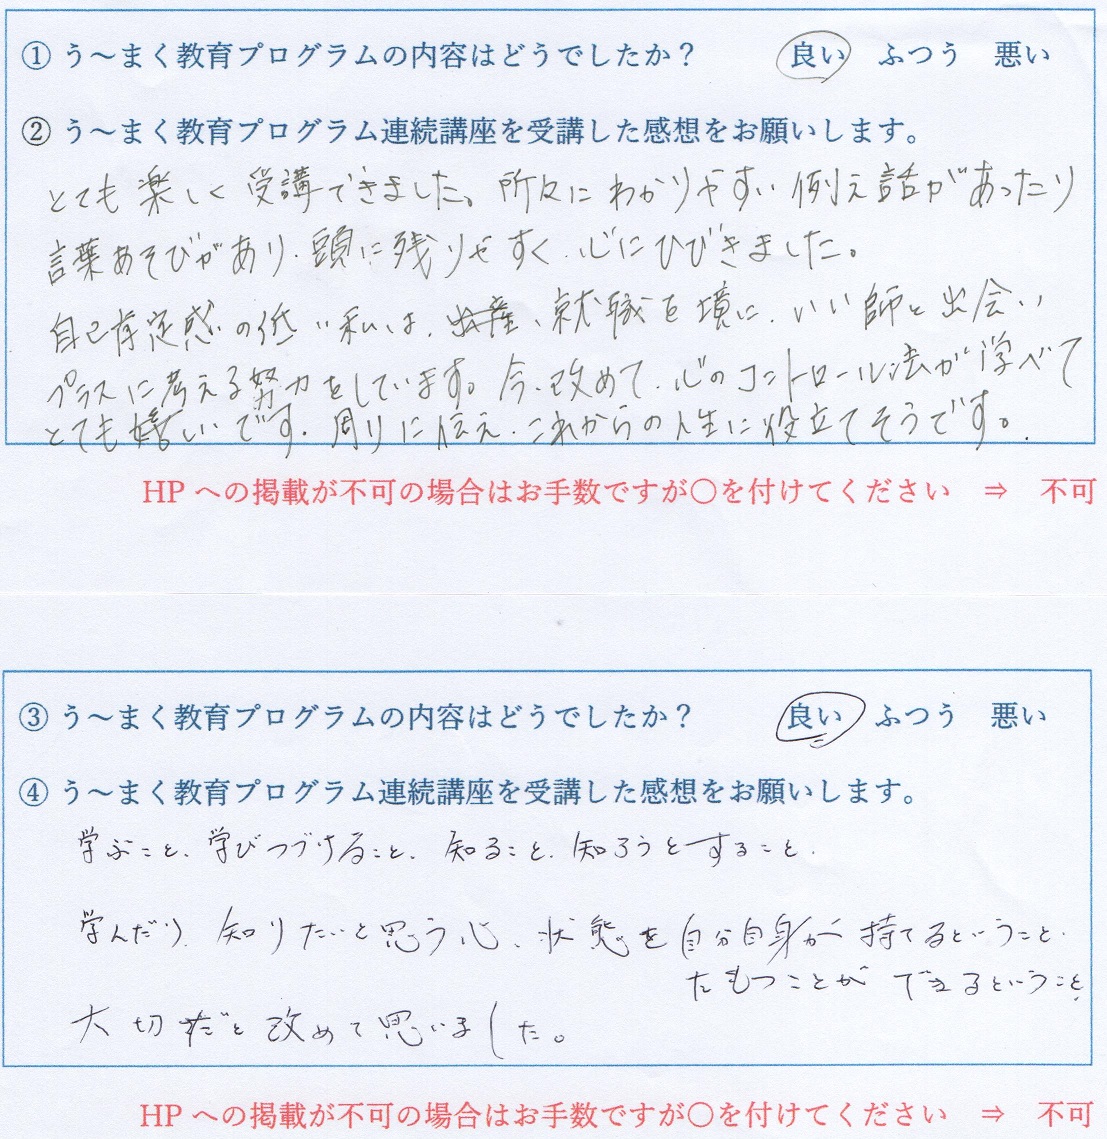 ① う～まく教育プログラムの内容はどうでしたか？ 良い ふつう 悪い
② う～まく教育プログラム連続講座を受講した感想をお願いします。
とても楽しく受講できました。所々にわかりやすい例え話があったり
言葉あそびがあり、頭に残りやすく、心にひびきました。
自己肯定感の低い私は、出産、就職を境に、いい師と出会い
プラスに考える努力をしています。今、改めて、心のコントロール法が学べて
とても嬉しいです。周りに伝え、これからの人生に役立てそうです。
HP への掲載が不可の場合はお手数ですが〇を付けてください ⇒ 不可
③ う～まく教育プログラムの内容はどうでしたか？ 良い ふつう 悪い
④ う～まく教育プログラム連続講座を受講した感想をお願いします。
学ぶこと、学びつづけること、知ること、知ろうとすること、
学んだり、知りたいと思う心、状態を自分自身が持てるということ、
たもつことができるということ、
大切だと改めて思いました。
HP への掲載が不可の場合はお手数ですが〇を付けてください ⇒ 不可